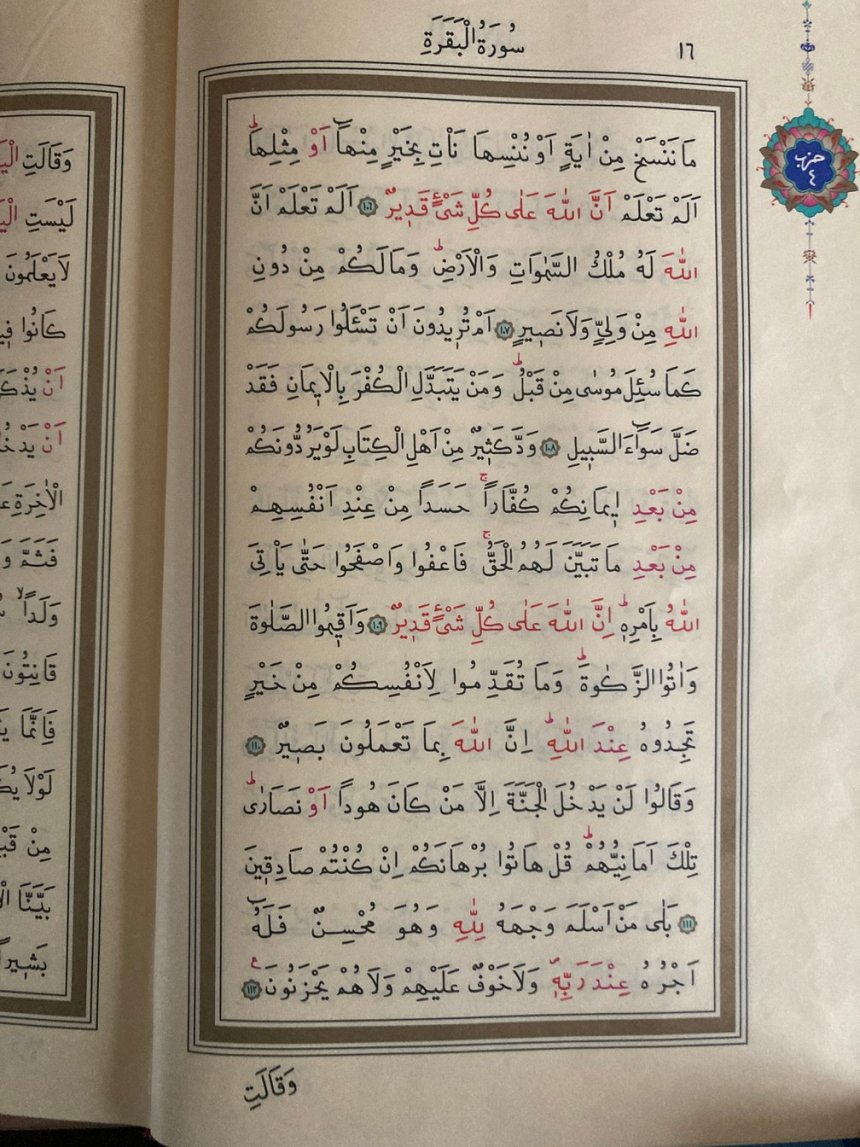 ١٦
سُورَةُ الْبَقَرَةِ
حزب
٤
مَا نَنْسَخْ مِنْ اٰيَةٍ اَوْ نُنْسِهَا نَأْتِ بِخَيْرٍ مِنْهَٓا اَوْ مِثْلِهَاۜ
اَلَمْ تَعْلَمْ اَنَّ اللّٰهَ عَلٰى كُلِّ شَيْءٍ قَد۪يرٌ ﴿١٠٦﴾ اَلَمْ تَعْلَمْ اَنَّ
اللّٰهَ لَهُ مُلْكُ السَّمٰوَاتِ وَالْاَرْضِۜ وَمَا لَكُمْ مِنْ دُونِ
اللّٰهِ مِنْ وَلِيٍّ وَلَا نَص۪يرٍ ﴿١٠٧﴾ اَمْ تُر۪يدُونَ اَنْ تَسْـَٔلُوا رَسُولَكُمْ
كَمَا سُئِلَ مُوسٰى مِنْ قَبْلُۜ وَمَنْ يَتَبَدَّلِ الْكُفْرَ بِالْا۪يمَانِ فَقَدْ
ضَلَّ سَوَٓاءَ السَّب۪يلِ ﴿١٠٨﴾ وَدَّ كَث۪يرٌ مِنْ اَهْلِ الْكِتَابِ لَوْ يَرُدُّونَكُمْ
مِنْ بَعْدِ ا۪يمَانِكُمْ كُفَّاراًۚ حَسَداً مِنْ عِنْدِ اَنْفُسِهِمْ
مِنْ بَعْدِ مَا تَبَيَّنَ لَهُمُ الْحَقُّۚ فَاعْفُوا وَاصْفَحُوا حَتّٰى يَأْتِيَ
اللّٰهُ بِاَمْرِه۪ۜ اِنَّ اللّٰهَ عَلٰى كُلِّ شَيْءٍ قَد۪يرٌ ﴿١٠٩﴾ وَاَق۪يمُوا الصَّلٰوةَ
وَاٰتُوا الزَّكٰوةَۜ وَمَا تُقَدِّمُوا لِاَنْفُسِكُمْ مِنْ خَيْرٍ
تَجِدُوهُ عِنْدَ اللّٰهِۜ اِنَّ اللّٰهَ بِمَا تَعْمَلُونَ بَص۪يرٌ ﴿١١٠﴾
وَقَالُوا لَنْ يَدْخُلَ الْجَنَّةَ اِلَّا مَنْ كَانَ هُوداً اَوْ نَصَارٰىۜ
تِلْكَ اَمَانِيُّهُمْۜ قُلْ هَاتُوا بُرْهَانَكُمْ اِنْ كُنْتُمْ صَادِق۪ينَ
﴿١١١﴾ بَلٰى مَنْ اَسْلَمَ وَجْهَهُ لِلّٰهِ وَهُوَ مُحْسِنٌ فَلَهُٓ
اَجْرُهُ عِنْدَ رَبِّه۪ۖ وَلَا خَوْفٌ عَلَيْهِمْ وَلَا هُمْ يَحْزَنُونَ۟ ﴿١١٢﴾
وَقَالَتِ
وَقَالَتِ
لَيْسَتِ
لَا يَعْلَمُونَ
كَانُوا
اَنْ
اَنْ
الْاٰخِرَةِ
فَثَمَّ
وَلَداًۙ
قَانِتُونَ
فَاِنَّمَا
لَوْلَا
مِنْ
بَيَّنَّا
بَش۪يراً